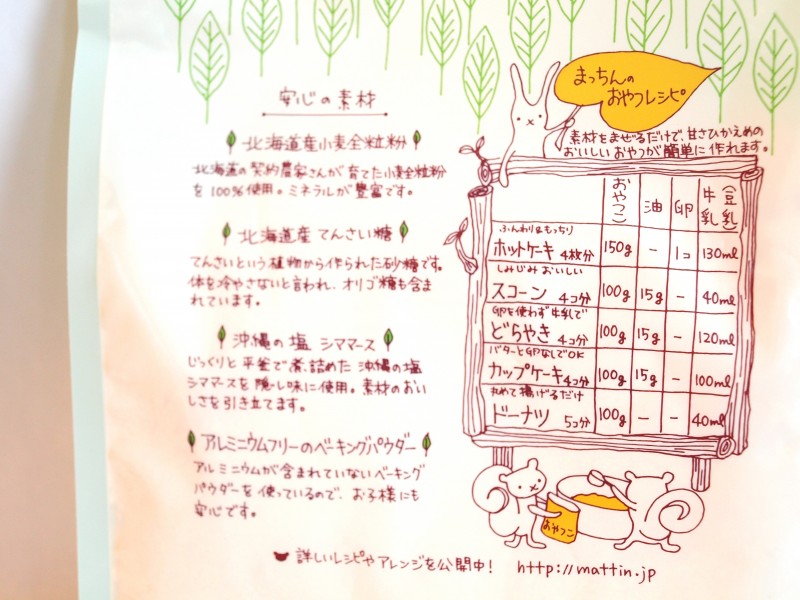 安心の素材
北海道産小麦全粒粉
北海道の契約農家さんが育てた小麦全粒粉
を100%使用。ミネラルが豊富です。
北海道産てんさい糖
てんさいという植物から作られた砂糖です。
体を冷やさないと言われ、オリゴ糖も含ま
れています。
沖縄の塩 シママース
じっくりと平釜で煮詰めた沖縄の塩
シママースを隠し味に使用。素材のおい
しさを引き立てます。
アルミニウムフリーのベーキングパウダー
アルミニウムが含まれていないベーキング
パウダーを使っているので、お子様にも
安心です。
まっちんの
おやつレシピ
素材をまぜるだけで、甘さひかえめの
おいしいおやつが簡単に作れます。
おやつこ 油 卵 牛乳(豆乳)
ふんわり&もっちり
ホットケーキ 4枚分 150g - 1コ 130ml
しみじみおいしい
スコーン 4コ分 100g 15g - 40ml
卵を使わず牛乳で
どらやき 4コ分 100g 15g - 120ml
バターと卵なしでOK
カップケーキ 4コ分 100g 15g - 100ml
丸めて揚げるだけ
ドーナツ 5コ分 100g - - 40ml
おやつこ
詳しいレシピやアレンジを公開中! http://mattin.jp